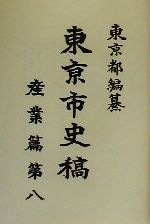 東京都編纂
東京市史稿
産業篇第八